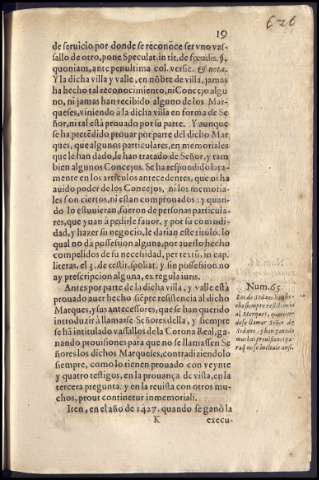 19
626
de seruicio, por donde se reconoce ser vno vas-
sallo de otro, pone Speculat. in tit. de fęudis. §.
quoniam, ante penultima col. versic. & nota.
Y la dicha villa y valle, en nõbre de villa, jamas
ha hecho tal reconocimiento, ni Concejo algu-
no, ni jamas han recibido alguno de los Mar-
queses, viniendo a la dicha villa en forma de Se-
ñor, ni tal està prouado por su parte. Y aunque
se ha pretẽdido prouar por parte del dicho Mar
ques, que algunos particulares, en memoriales
que le han dado, le han tratado de Señor, y tam
bien algunos Concejos. Se ha respondido lar a-
mente en los articulos antecedentes, que ni ha
auido poder de los Concejos, ni los memoria-
les son ciertos, ni estan comprouados: y quan-
do lo estuuieran, fueron de personas particula-
res, que yuan a pedirle fauor, y por su comodi-
dad, y hazer su negocio, le darian este titulo. lo
qual no da possession alguna, por auerlo hecho
compelidos de su necessidad, per text. in cap.
literas, el 3. de restit. spoliat. y sin possession no
ay prescripcion alguna, ex regula iuris.
Antes por parte de la dicha villa, y valle està
prouado auer hecho siẽpre resistencia al dicho
Marques, y sus antecessores, que se han querido
introduzir a llamarse Señores della, y siempre
se hã intitulado vassallos de la Corona Real, ga-
nando prouisiones para que no se llamassen Se
ñores los dichos Marqueses, contradiziendolo
siempre, como lo tienen prouado con veynte
y quatro testigos, en la prouança de vista, en la
tercera pregunta, y en la reuista con otros mu-
chos, prout continetur in memoriali.
Iten, en el año de 1427. quando se ganò la
K
execu-
Num. 65